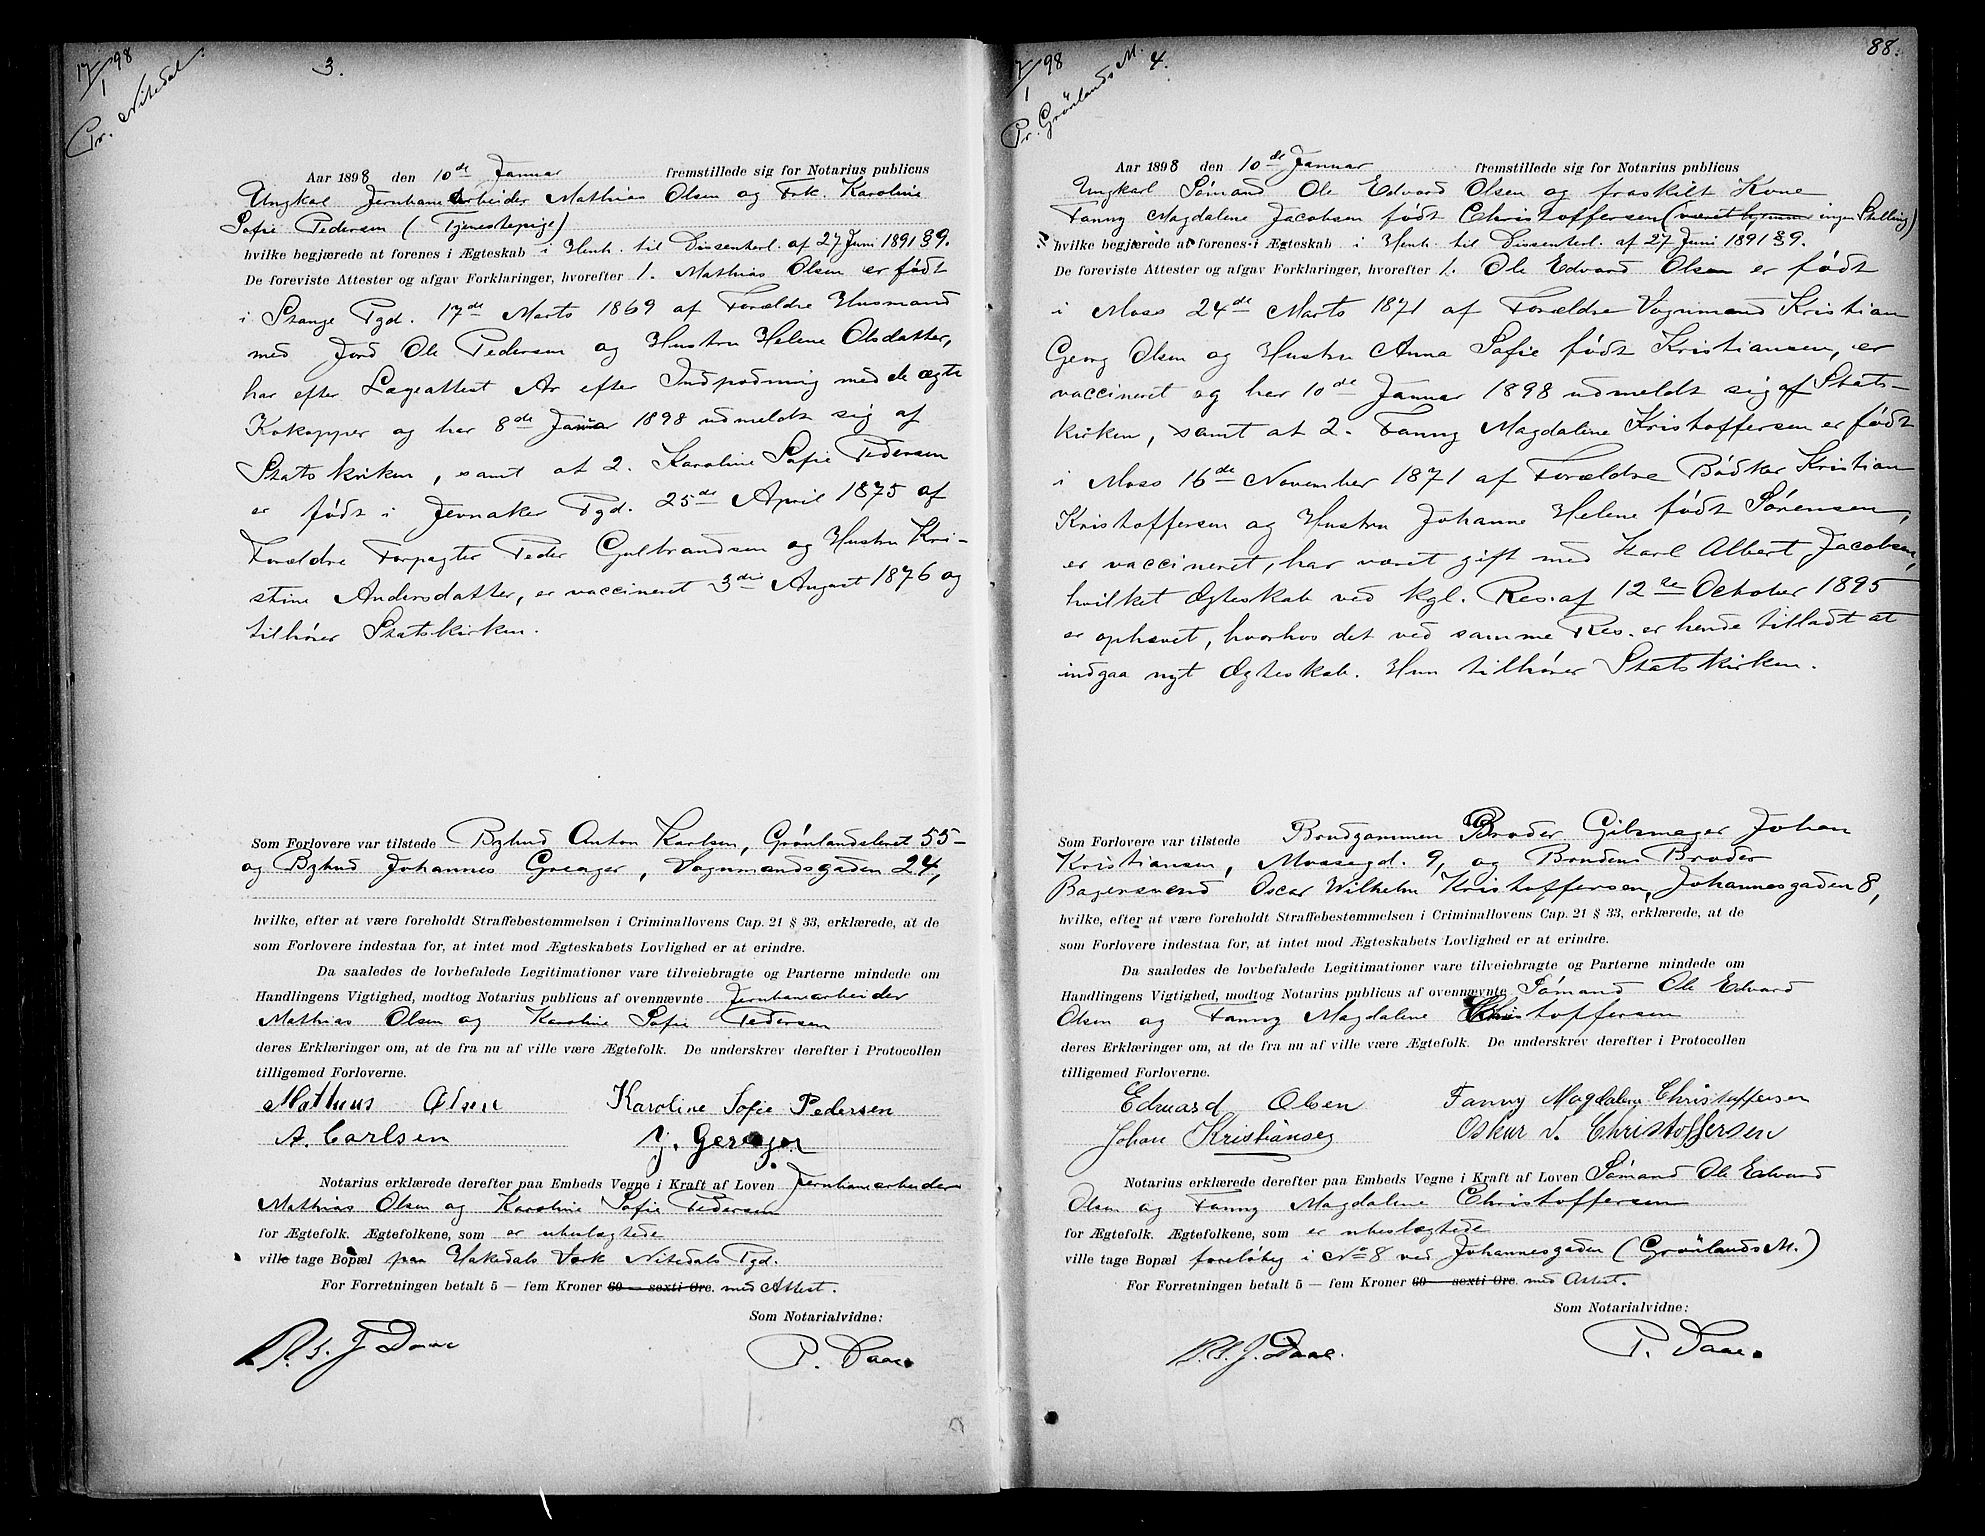 17/1 98
Pr. Nitedal.
3.
Aar 1898 den 10de Januar fremstillede sig for Notarius publicus
Ungkarl Jernbanearbeider Mathias Olsen og Frk. Karoline
Sofie Pedersen (Tjenestepige)
hvilke begjærede at forenes i Ægteskab i Henh. til Dissenterl. af 27 Juni 1891 § 9.
De foreviste Attester og afgav Forklaringer, hvorefter 1. Mathias Olsen er født
i Stange Pgd. 17de Marts 1869 af Forældre Husmand
med Jord Ole Pedersen og Hustru Helene Olsdatter,
har efter Lægeattest Ar efter Indpodning med de ægte
Kokopper og har 8de Januar 1898 udmeldt sig af
Statskirken, samt at 2. Karoline Sofie Pedersen
er født i Jevnaker Pgd. 25de April 1875 af
Forældre Forpagter Peder Gulbrandsen og Hustru Kri-
stine Andersdatter, er vaccineret 3die August 1876 og
tilhører Statskirken.
Som Forlovere var tilstede Bybud Anton Karlsen, Grønlandsleret 55
og Bybud Johannes Greager, Vognmandsgaden 24,
hvilke, efter at være foreholdt Straffebestemmelsen i Criminallovens Cap. 21 § 33, erklærede, at de
som Forlovere indestaa for, at intet mod Ægteskabets Lovlighed er at erindre.
Da saaledes de lovbefalede Legitimationer vare tilveiebragte og Parterne mindede om
Handlingens Vigtighed, modtog Notarius publicus af ovennævnte Jernbanearbeider
Mathias Olsen og Karoline Sofie Pedersen
deres Erklæringer om, at de fra nu af ville være Ægtefolk. De underskrev derefter i Protocollen
tilligemed Forloverne.
Mathias Olsen Karoline Sofie Pedersen
A. Carlsen J.
Notarius erklærede derefter paa Embeds Vegne i Kraft af Loven Jernbanearbeider
Mathias Olsen og Karoline Sofie Pedersen
for Ægtefolk. Ægtefolkene, som er ubeslægtede
ville tage Bopæl paa Hakedals Værk Nitedals Pgd.
For Forretningen betalt 5 — fem Kroner 60 — sexti Øre. med Attest.
Som Notarialvidne:
Daae P. Daae.
7/1 98
Pr. Grönlands M.
4.
88.
Aar 1898 den 10de Januar fremstillede sig for Notarius publicus
Ungkarl Sømand Ole Edvard Olsen og fraskilt Kone
Fanny Magdalene Jacobsen født Christoffersen (været hjemme ingen Stilling)
hvilke begjærede at forenes i Ægteskab i Henh. til Dissenterl. af 27 Juni 1891 § 9.
De foreviste Attester og afgav Forklaringer, hvorefter 1. Ole Edvard Olsen er født
i Moss 24de Marts 1871 af Forældre Vognmand Kristian
Georg Olsen og Hustru Anna Sofie født Kristiansen, er
vaccineret og har 10de Januar 1898 udmeldt sig af Stats-
kirken, samt at 2. Fanny Magdalene Kristoffersen er født
i Moss 16de November 1871 af Forældre Bödker Kristian
Kristoffersen og Hustru Johanne Helene født Sørensen,
er vaccineret, har været gift med Karl Albert Jacobsen,
hvilket Ægteskab ved Kgl. Res. af 12te October 1895
er ophævet, hvorhos det ved samme Res. er hende tilladt at
indgaa nyt Ægteskab. Hun tilhører Statskirken.
Som Forlovere var tilstede Brudgommen Broder Gibsmager Johan
Kristiansen, Mossegd. 9, og Brudens Broder
Bagersvend Oscar Wilhelm Kristoffersen, Johannesgaden 8,
hvilke, efter at være foreholdt Straffebestemmelsen i Criminallovens Cap. 21 § 33, erklærede, at de
som Forlovere indestaa for, at intet mod Ægteskabets Lovlighed er at erindre.
Da saaledes de lovbefalede Legitimationer vare tilveiebragte og Parterne mindede om
Handlingens Vigtighed, modtog Notarius publicus af ovennævnte Sømand Ole Edvard
Olsen og Fanny Magdalene Christoffersen
deres Erklæringer om, at de fra nu af ville være Ægtefolk. De underskrev derefter i Protocollen
tilligemed Forloverne.
Edvard Olsen Fanny Magdalene Christoffersen
Johan Kristiansen Oskar V. Christoffersen
Notarius erklærede derefter paa Embeds Vegne i Kraft af Loven Sømand Ole Edvard
Olsen og Fanny Magdalene Christoffersen
for Ægtefolk. Ægtefolkene, som er ubeslægtede
ville tage Bopæl foreløbig i No 8 ved Johannesgaden (Grönlands M.)
For Forretningen betalt 5 — fem Kroner 60 — sexti Øre. med Attest.
Som Notarialvidne:
Daae. P. Daae.